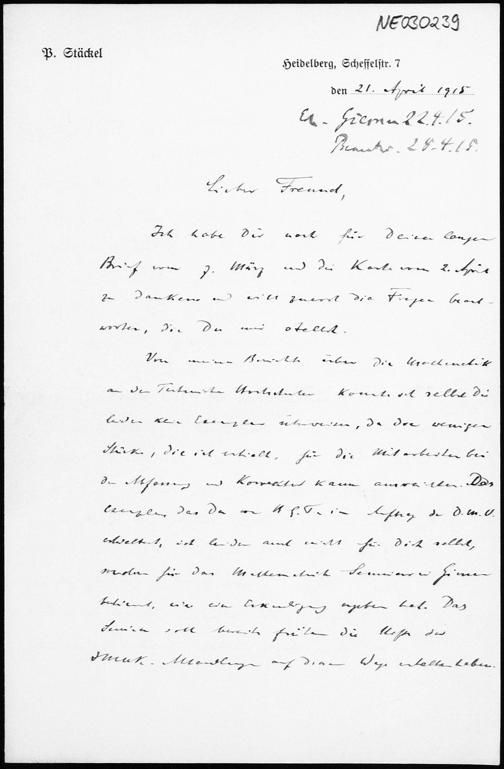 NE030239
P. Stäckel
Heidelberg, Scheffelstr. 7
den 21. April 1915
Er. Giessen 22.4.15.
Beantw. 28.4.15.
Lieber Freund,
Ich habe Dir noch für Deinen langen
Brief vom 7. März und die Karte vom 2. April
zu danken und will zuerst die Fragen beant-
worten, die Du mir stellst.
Von meinem Berichte über die Mathematik
an den Technischen Hochschulen konnte ich selbst Dir
leider kein Exemplar überweisen, da die wenigen
Stücke, die ich erhielt, für die Mitarbeiter bei
der Abfassung und Korrektur kaum ausreichten. Das
Exemplar, das Du von B. G. T. im Auftrag der D.M.V.
erhieltest, ist leider auch nicht für Dich selbst,
sondern für das Mathematische Seminar in Giessen
bestimmt, wie eine Erkundigung ergeben hat. Das
Seminar soll bereits früher die Hefte der
IMUK-Abhandlungen auf diesem Wege erhalten haben.